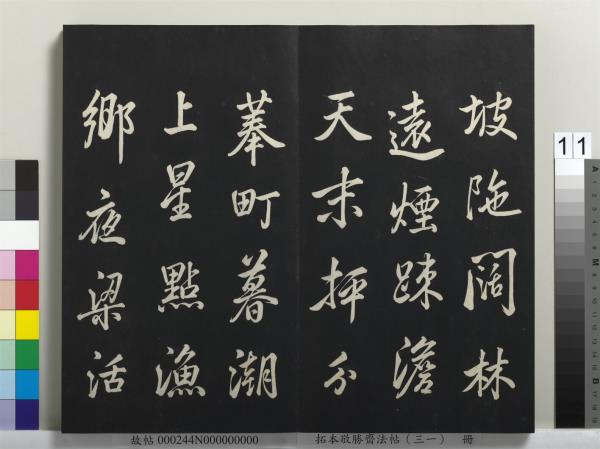 坡陁闊林
遠煙疎澹
天末抨分
菶町暮潮
上星點漁
鄉夜梁活
故帖 000244N000000000 拓本敬勝齋法帖(三一) 冊
11
A
M
B